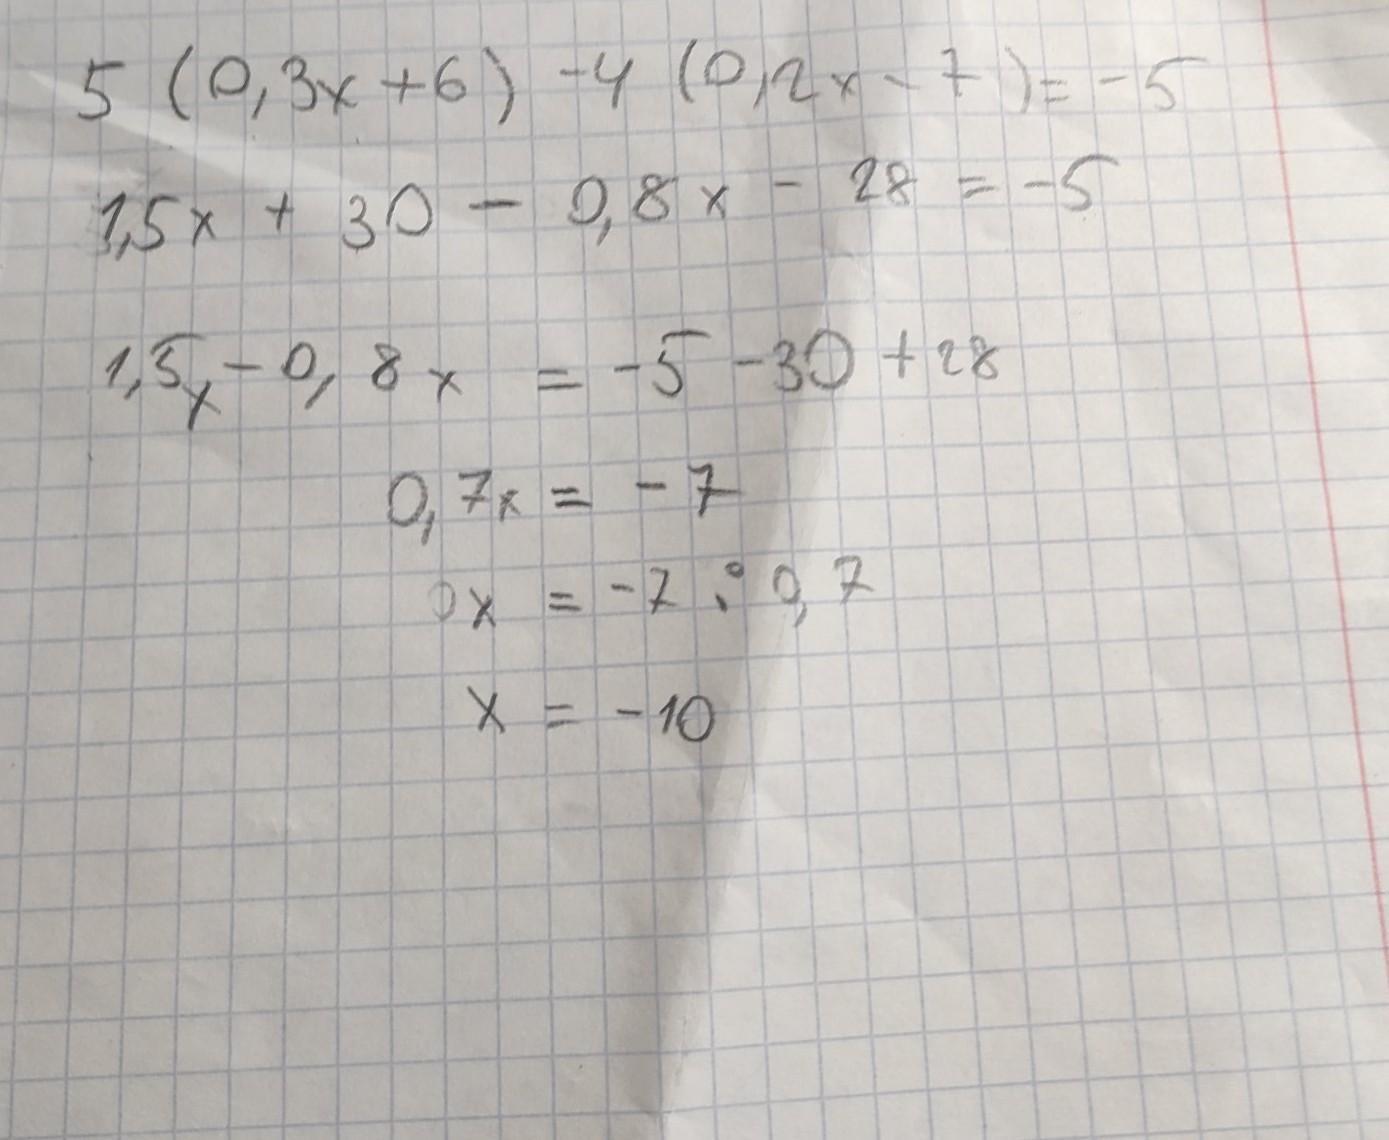 5 (0,3x +6) -4 (0,2x - 7) = -5
1,5x + 30 - 0,8x - 28 = -5
1,5x - 0,8x = -5 -30 +28
0,7x = -7
0x = -7 : 0,7
x = -10